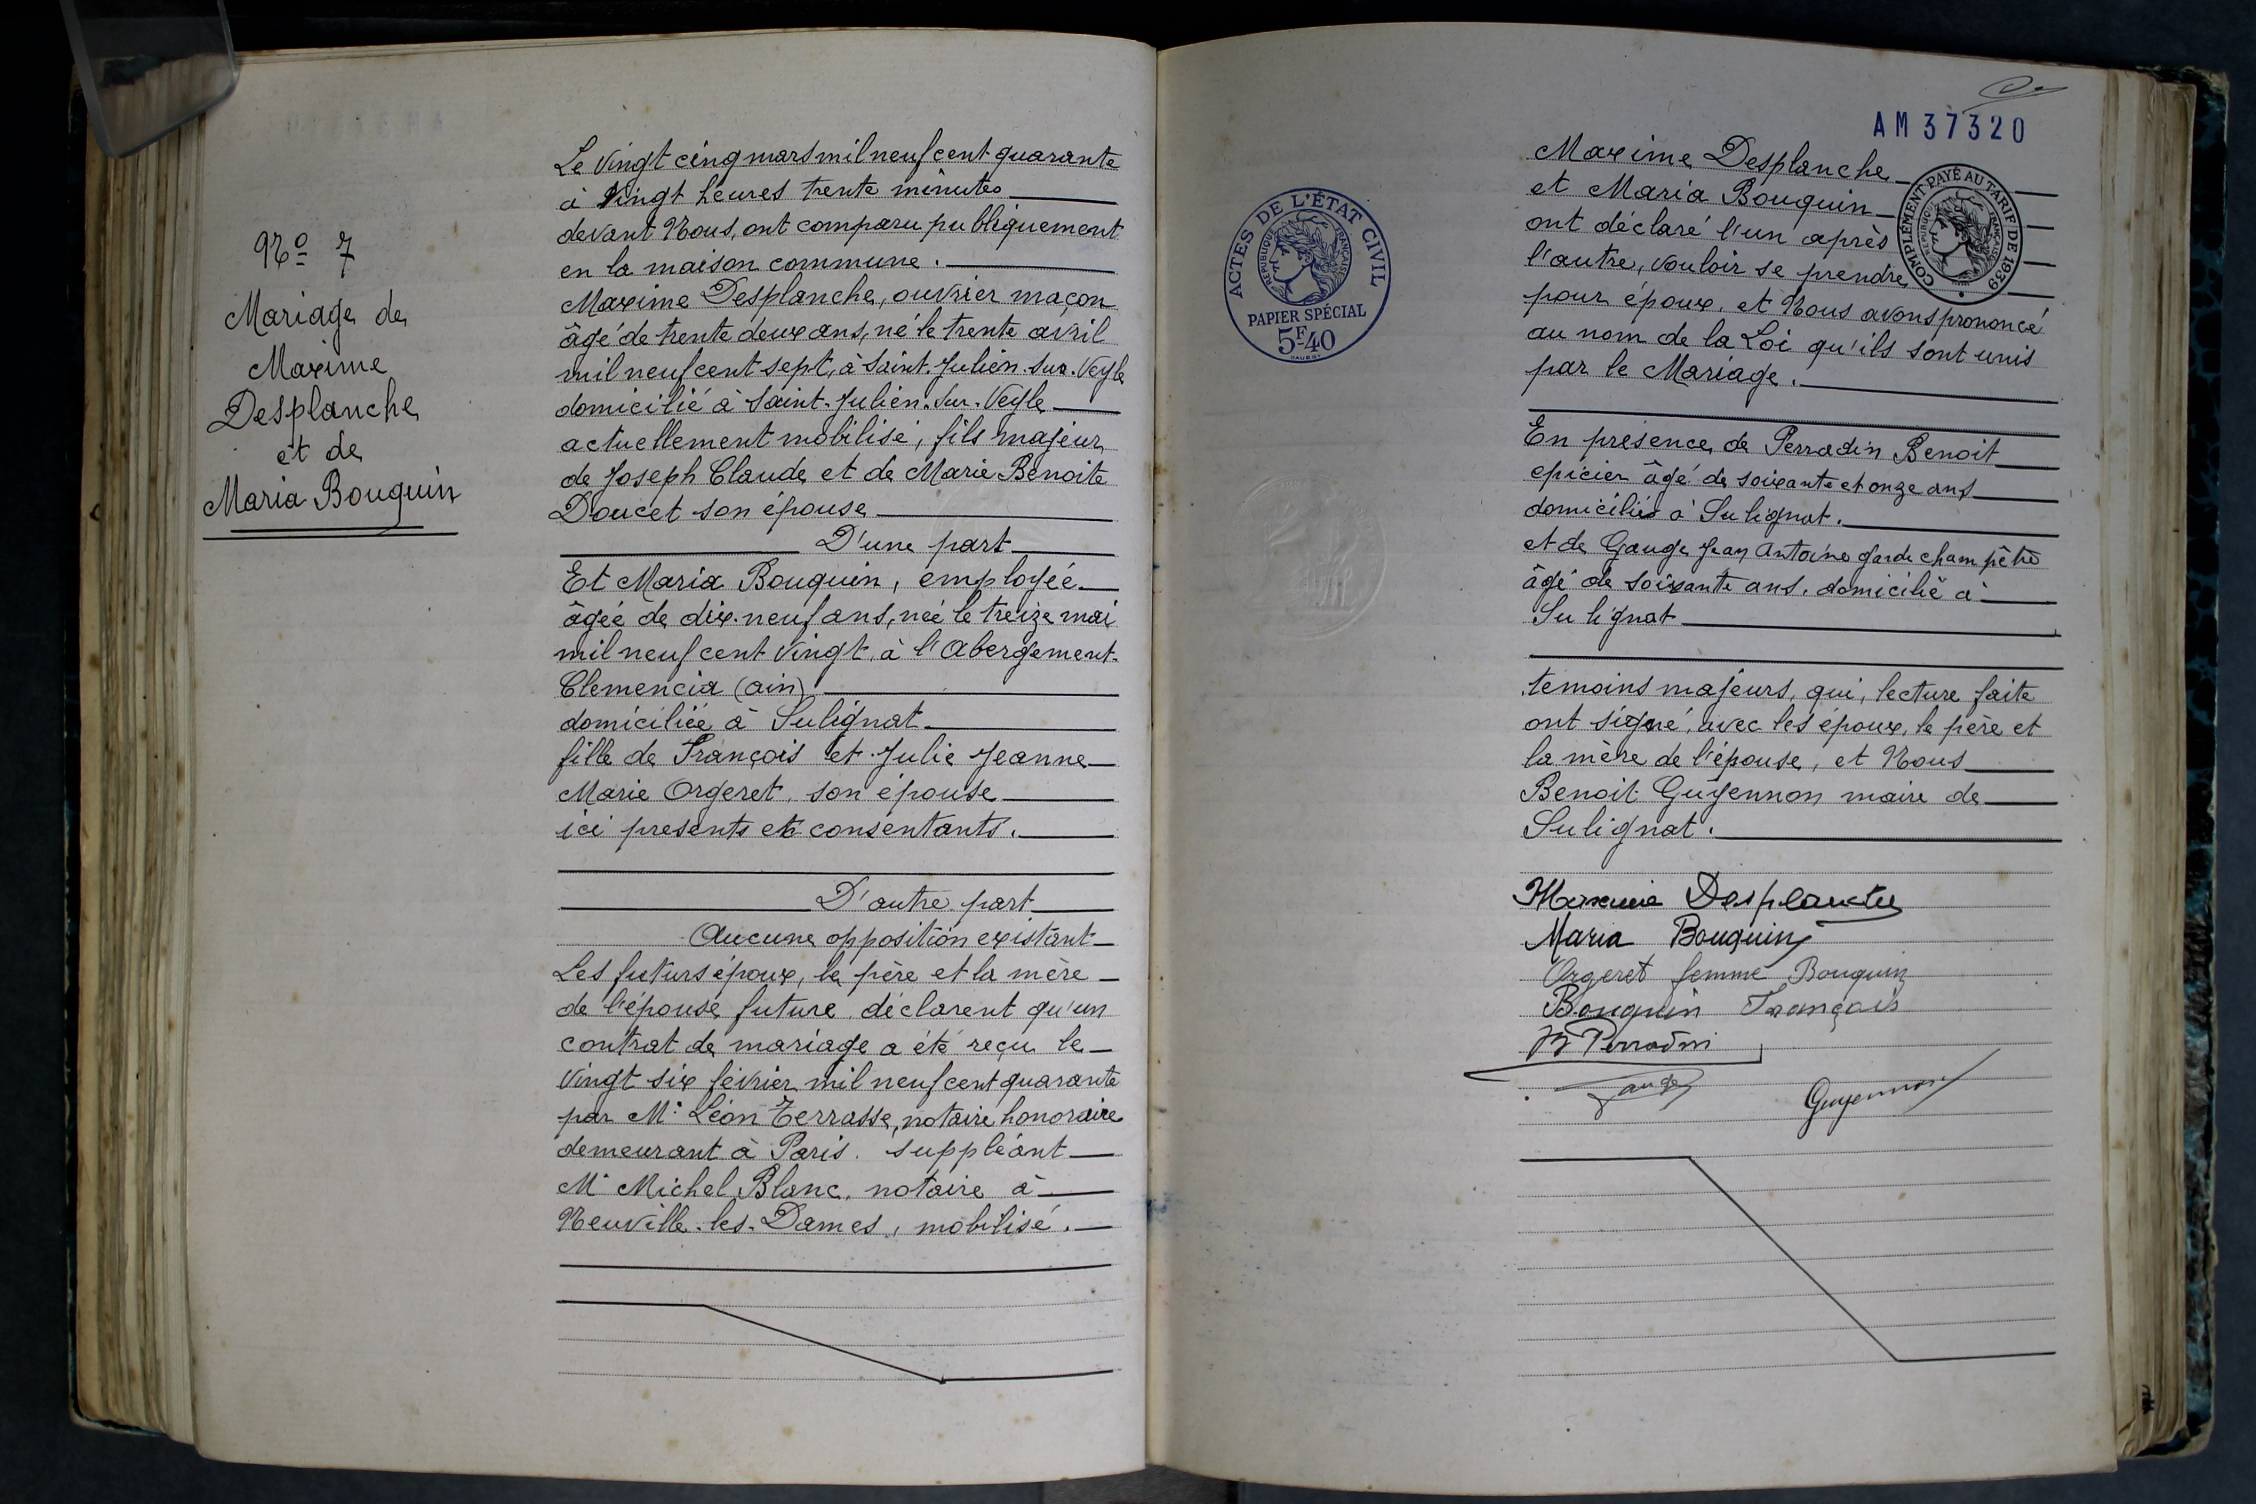 No 7
Mariage de
Maxime
Desplanche
et de
Maria Bouguin
Le vingt cinq mars mil neuf cent quarante
à vingt heures trente minutes
devant Nous, ont comparu publiquement
en la maison commune.
Maxime Desplanche, ouvrier maçon
âgé de trente deux ans, né le trente avril
mil neuf cent sept, à Saint-Julien-sur-Veyle
domicilié à Saint-Julien-sur-Veyle
actuellement mobilisé, fils majeur
de Joseph Claude et de Marie Benoite
Doucet son épouse
D'une part
Et Maria Bouguin, employée
âgée de dix-neuf ans, née le treize mai
mil neuf cent vingt, à l'Abergement-
Clemencia (ain)
domiciliée à Sulignat
fille de François et Julie Jeanne
Marie Orgeret, son épouse
ici presents et consentants.
D'autre part
Aucune opposition existant
Les futurs époux, le père et la mère
de l'épouse future, déclarent qu'un
contrat de mariage a été reçu le
vingt six février mil neuf cent quarante
par Me Léon Terrasse, notaire honoraire
demeurant à Paris. suppléant
Me Michel Blanc, notaire à
Neuville-les-Dames, mobilisé.
ACTES DE L'ÉTAT CIVIL
RÉPUBLIQUE FRANÇAISE
PAPIER SPÉCIAL
5F40
AM 37320
COMPLÉMENT PAYÉ AU TARIF DE 1939
RÉPUBLIQUE FRANÇAISE
Maxime Desplanche
et Maria Bouguin
ont déclaré l'un après
l'autre, vouloir se prendre
pour époux, et Nous avons prononcé
au nom de la Loi qu'ils sont unis
par le Mariage.
En présence de Perradin Benoit
epicier âgé de soixante et onze ans
domicilié à Sulignat.
et de Gauge Jean Antoine garde champêtre
âgé de soixante ans, domicilié à
Sulignat
temoins majeurs, qui, lecture faite
ont signé, avec les époux, le père et
la mère de l'épouse, et Nous
Benoit Guyennon maire de
Sulignat.
Maxime Desplanche
Maria Bouguin
Orgeret femme Bouguin
Bouguin François
B Perradin
Gauge
Guyennon